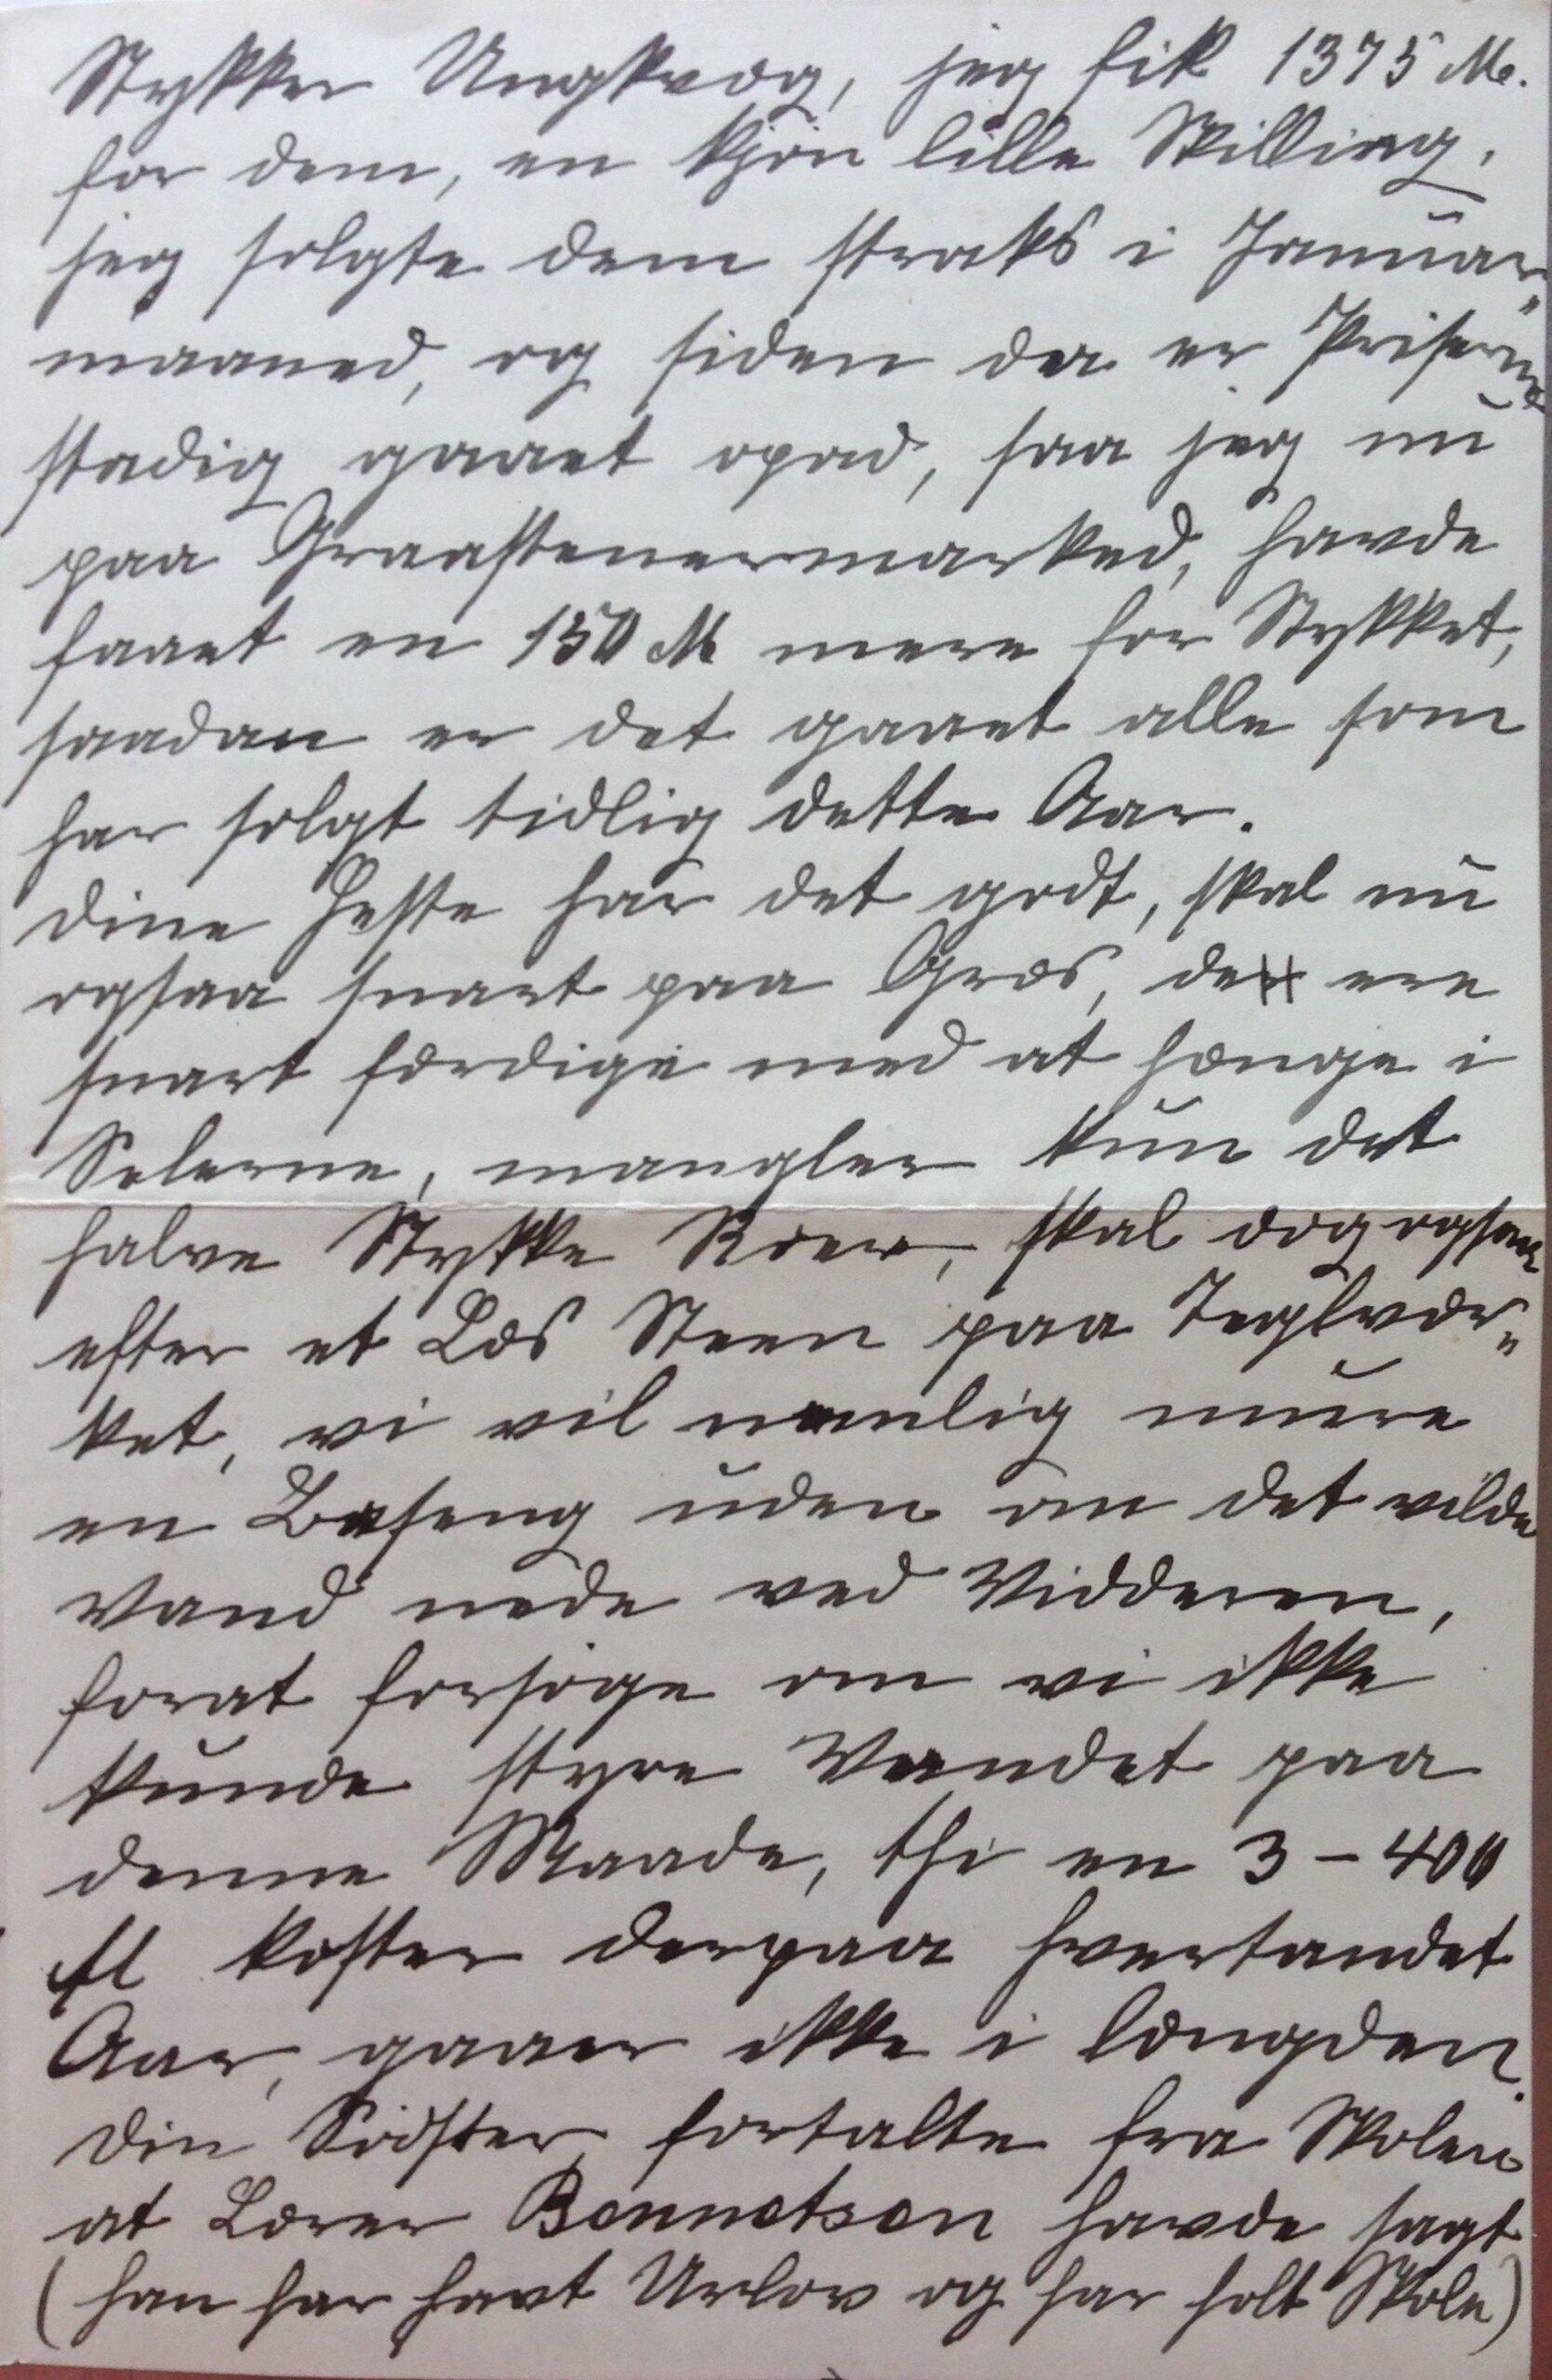 Stykker Ungkvæg, jeg fik 1375 M.
for dem, en kjøn lille Skilling,
jeg solgte dem straks i Januar„
maaned, og siden da er Priserne
stadig gaaet opad, saa jeg nu
paa Graastenermarked, havde
faaet en 150 M mere for Stykket,
saadan er det gaaet alle som
har solgt tidlig dette Aar.
Dine Heste har det godt, skal nu
ogsaa snart paa Græs, de ere
snart færdige med at hænge i
Selerne, mangler kun det
halve Stykke Roer, skal dog ogsaa
efter et Læs Steen paa Teglvær„
ket, vi vil nemlig mure
en Baseng uden om det vilde
Vand nede ved Vidderen,
forat forsøge om vi ikke
kunde styre Vandet paa
denne Maade, thi en 3-400
M koster derpaa hvertandet
Aar, gaaer ikke i længden.
Din Sødster fortalte fra Skolen
at Lærer Bonnetsen havde sagt
(han har havt Urlov og har holt Skole)